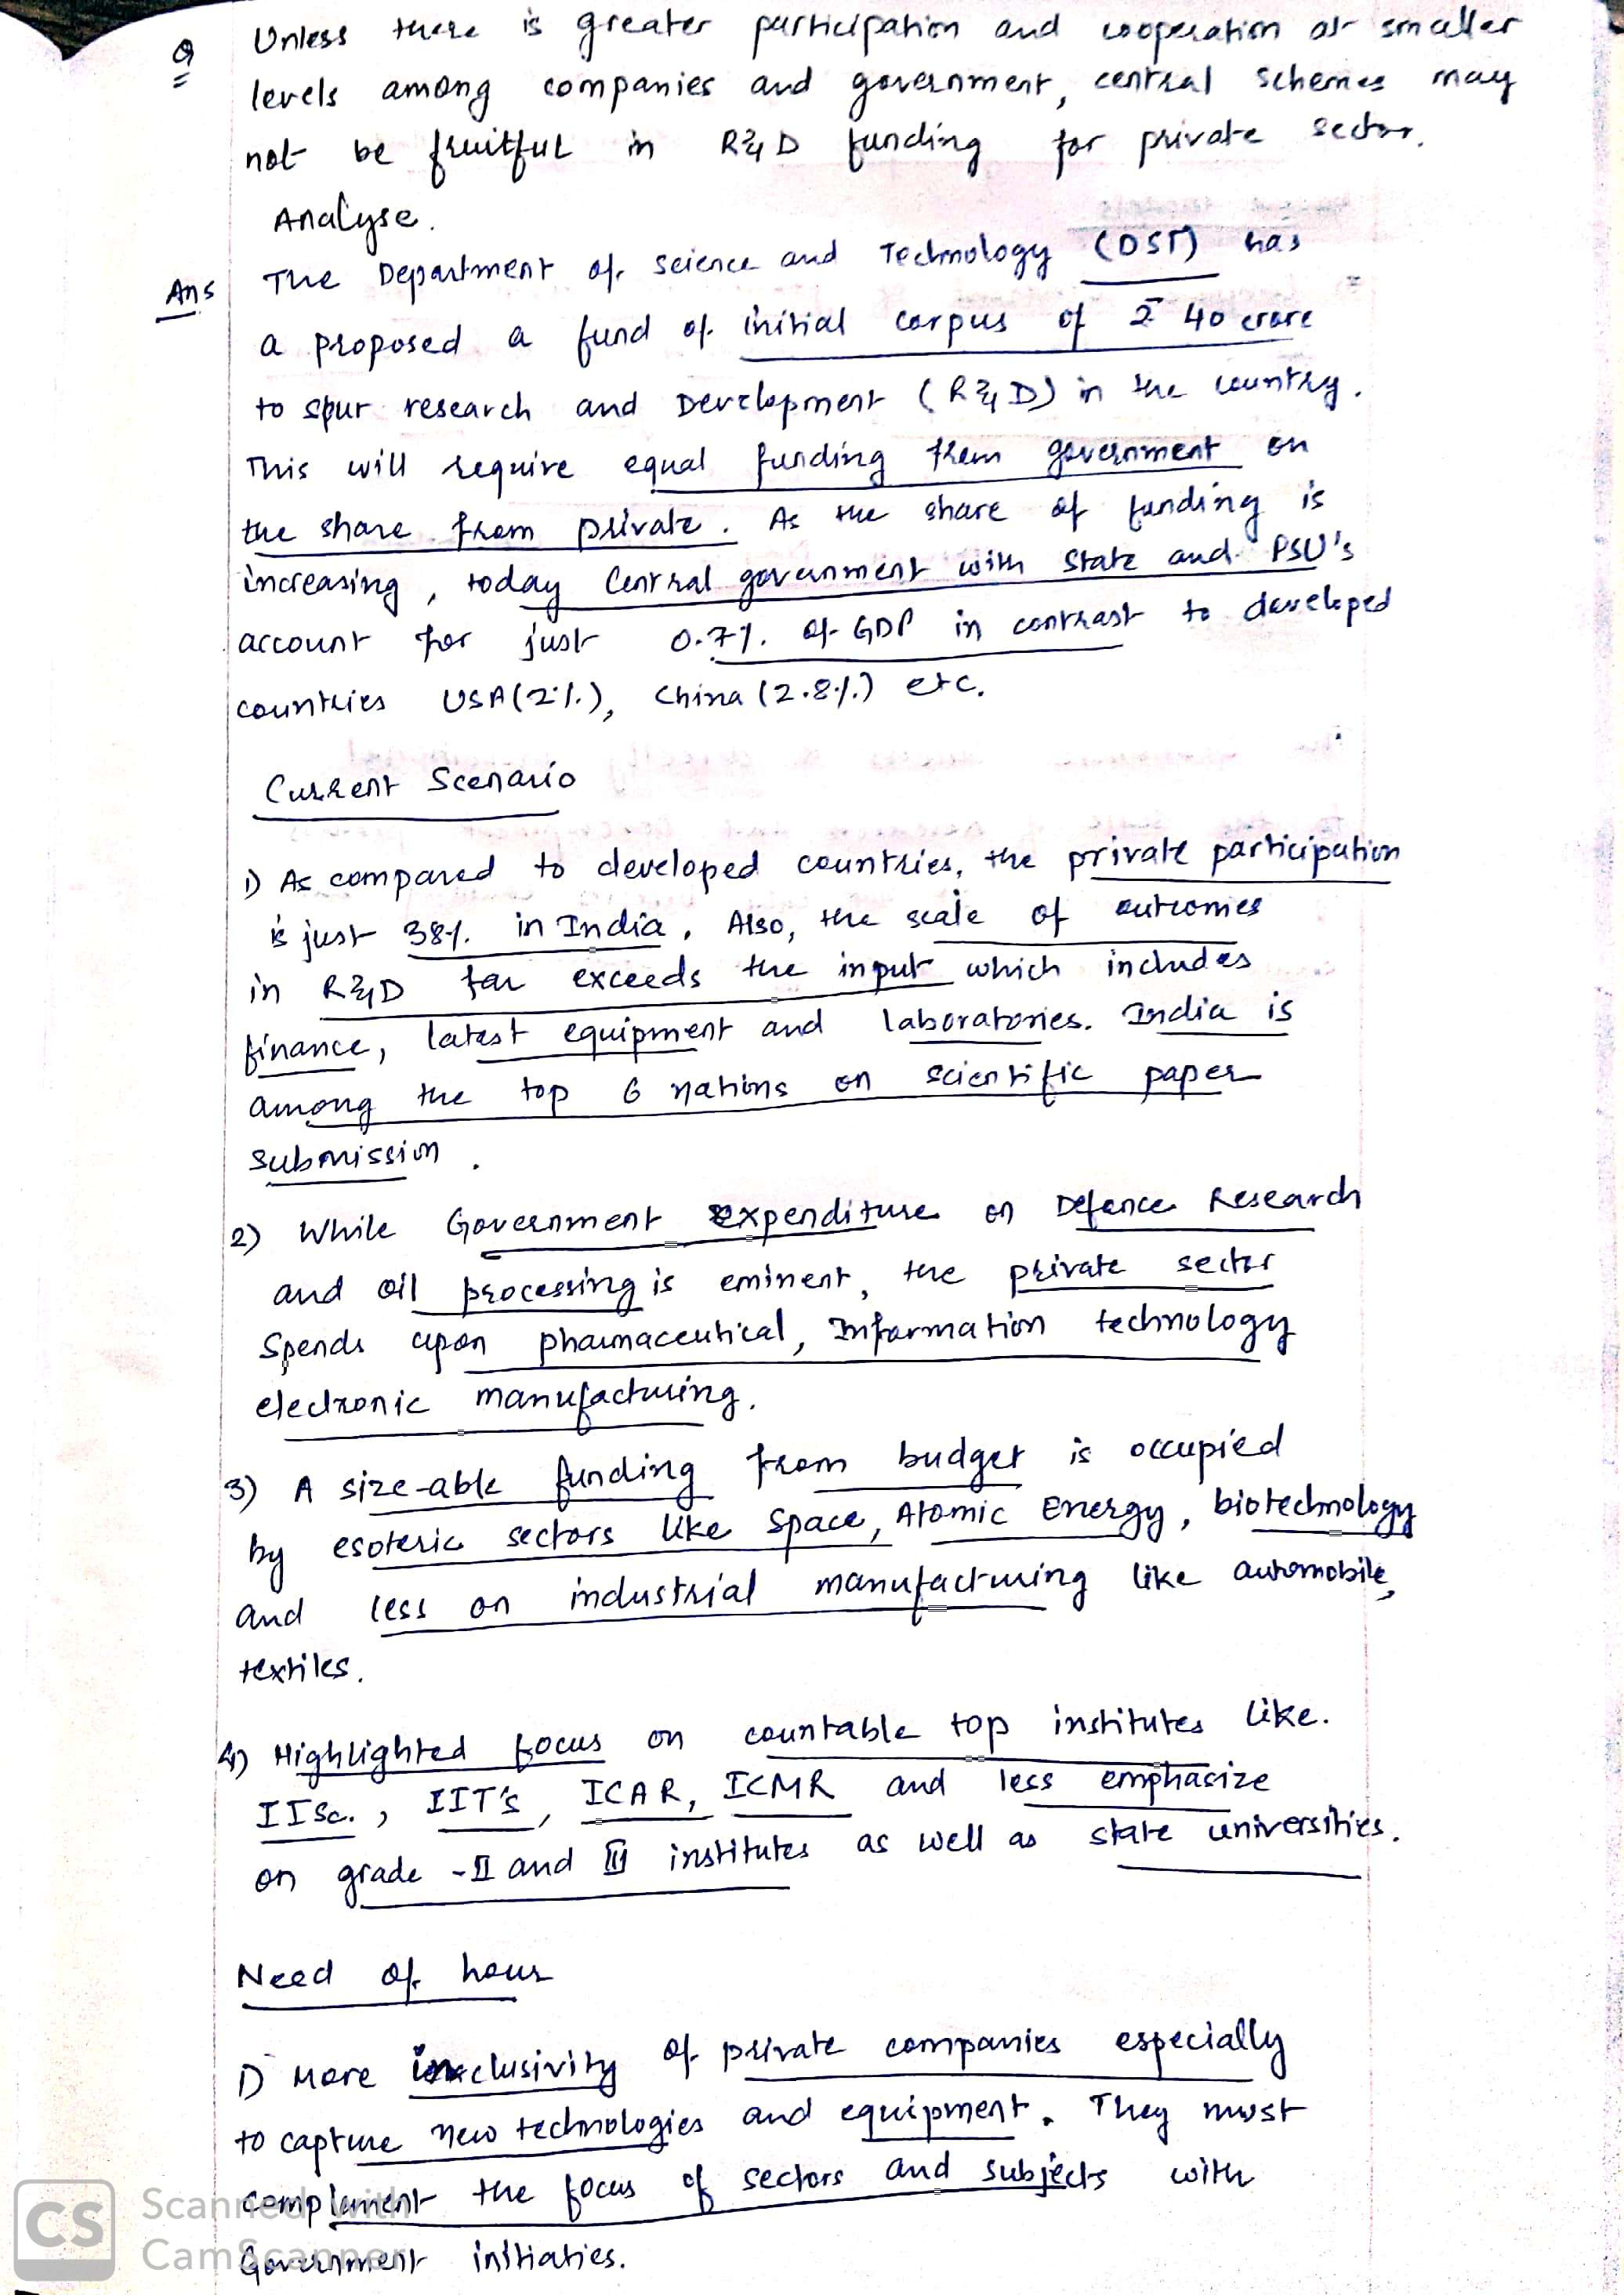 Q Unless there is greater participation and cooperation at smaller
levels among companies and government, central schemes may
not be fruitful in R&D funding for private sector.
Analyse.
Ans The Department of science and Technology (DST) has
a proposed a fund of initial corpus of ₹ 40 crore
to spur research and Development (R&D) in the country.
This will require equal funding from government on
the share from private. As the share of funding is
increasing, today Central government with state and PSU's
account for just 0.7%. of GDP in contrast to developed
countries USA (2%.), China (2.8%.) etc.
Current Scenario
1) As compared to developed countries, the private participation
is just 38%. in India. Also, the scale of outcomes
in R&D far exceeds the input which includes
finance, latest equipment and laboratories. India is
among the top 6 nations on scientific paper
submission.
2) While Government expenditure on Defence Research
and oil processing is eminent, the private sector
spends upon pharmaceutical, Information technology
electronic manufacturing.
3) A size-able funding from budget is occupied
by esoteric sectors like space, Atomic Energy, biotechnology
and less on industrial manufacturing like automobile,
textiles.
4) Highlighted focus on countable top institutes like.
IISc., IIT's, ICAR, ICMR and less emphasize
on grade - II and III institutes as well as state universities.
Need of hour
1) More inclusivity of private companies especially
to capture new technologies and equipment. They must
complement the focus of sectors and subjects with
Government initiaties.
CS Scanned with
CamScanner